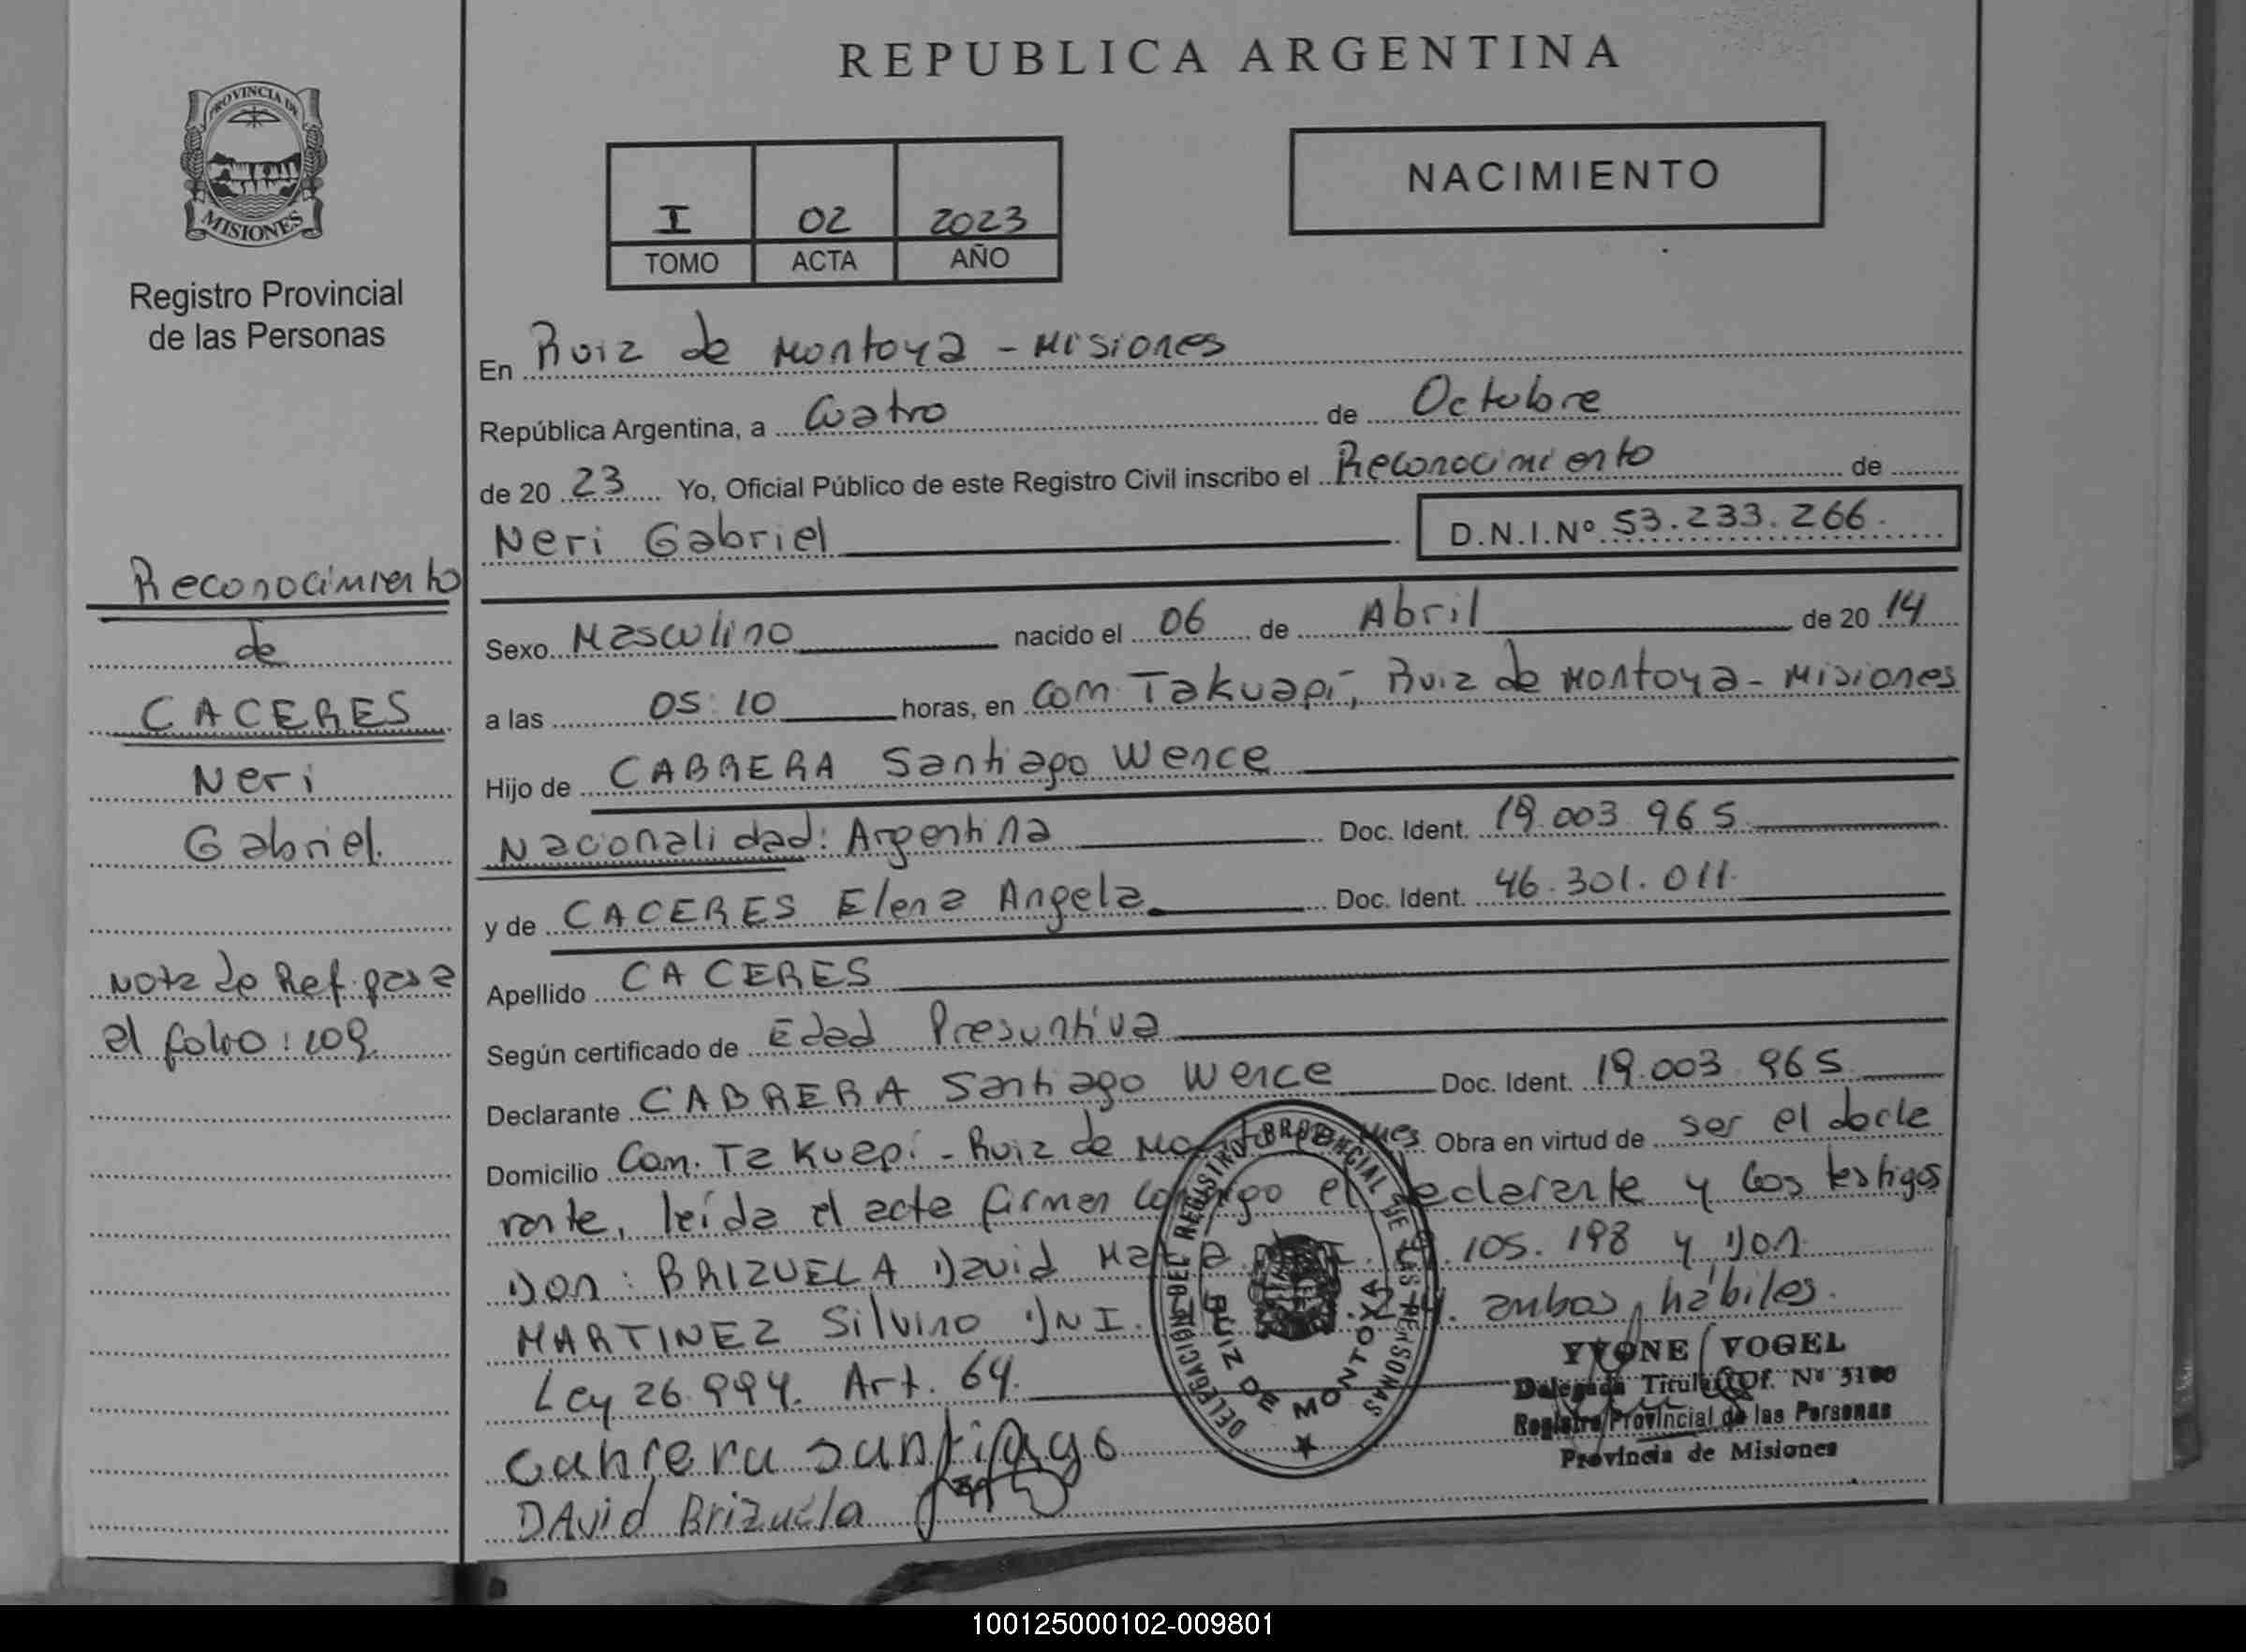 REPUBLICA ARGENTINA
PROVINCIA DE
MISIONES
Registro Provincial
de las Personas
I 02 2023
TOMO ACTA AÑO
NACIMIENTO
En Ruiz de Montoya - Misiones
República Argentina, a Cuatro de Octubre
de 20 23 Yo, Oficial Público de este Registro Civil inscribo el Reconocimiento de
Neri Gabriel D.N.I.Nº 53.233.266.
Sexo Masculino nacido el 06 de Abril de 20 14
a las 05:10 horas, en Com. Takuapí, Ruiz de Montoya - Misiones
Hijo de CABRERA Santiago Wence
Nacionalidad: Argentina Doc. Ident. 19.003.965
y de CACERES Elena Angela Doc. Ident. 46.301.011.
Apellido CACERES
Según certificado de Edad Presuntiva
Declarante CABRERA Santiago Wence Doc. Ident. 19.003.965
Domicilio Com. Takuapí - Ruiz de Obra en virtud de ser el decla
rante, leída el acta firman el declarante y los testigos
Don: BRIZUELA David 105.198 y Don
MARTINEZ Silvino DNI. ambos hábiles.
Ley 26.994. Art. 64.
Cabrera santiago
David Brizuela
Reconocimiento
de
CACERES
Neri
Gabriel.
Nota de Ref. pasa
al folio: 109.
DELEGACION DEL REGISTRO PROVINCIAL DE LAS PERSONAS
RUIZ DE MONTOYA
YVONE VOGEL
Delegada Titular Of. Nº 5100
Registro Provincial de las Personas
Provincia de Misiones
100125000102-009801